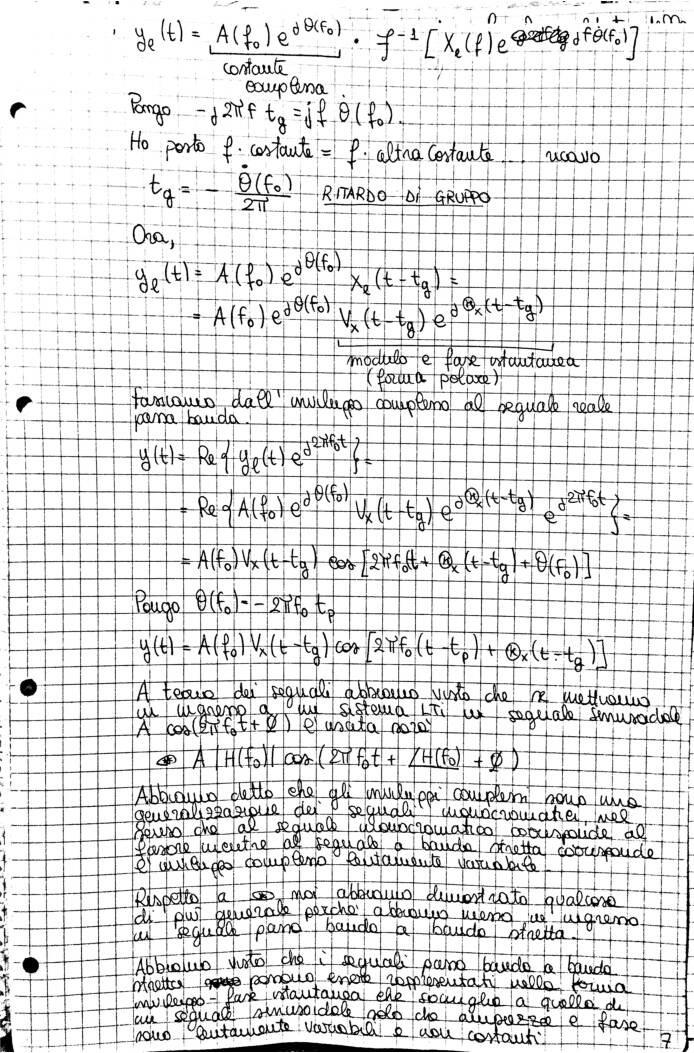 y_e(t) = A(f₀) e^{jθ(f₀)} · F⁻¹ [ X_e(f) e^{j f θ̇(f₀)} ]
costante
complessa
Pongo -j2πf t_g = jf θ̇(f₀).
Ho posto f · costante = f · altra costante ... ricavo
t_g = - θ̇(f₀)/2π RITARDO DI GRUPPO
Ora,
y_e(t) = A(f₀) e^{jθ(f₀)} x_e(t-t_g) =
= A(f₀) e^{jθ(f₀)} V_x(t-t_g) e^{jΘ_x(t-t_g)}
modulo e fase istantanea
(forma polare)
Passiamo dall' inviluppo complesso al segnale reale
passa banda.
y(t) = Re{ y_e(t) e^{j2πf₀t} } =
= Re{ A(f₀) e^{jθ(f₀)} V_x(t-t_g) e^{jΘ_x(t-t_g)} e^{j2πf₀t} } =
= A(f₀) V_x(t-t_g) cos [2πf₀t + Θ_x(t-t_g) + θ(f₀)]
Pongo θ(f₀) = -2πf₀ t_p
y(t) = A(f₀) V_x(t-t_g) cos [2πf₀(t-t_p) + Θ_x(t-t_g)]
A teoria dei segnali abbiamo visto che se mettiamo
in ingresso a un sistema LTI un segnale sinusoidale
A cos(2πf₀t + φ) l'uscita sarà
⊛ A |H(f₀)| cos (2πf₀t + ∠H(f₀) + φ)
Abbiamo detto che gli inviluppi complessi sono una
generalizzazione dei segnali monocromatici, nel
senso che al segnale monocromatico corrisponde al
fasore mentre al segnale a banda stretta corrisponde
l'inviluppo complesso lentamente variabile.
Rispetto a ⊛ noi abbiamo dimostrato qualcosa
di più generale perché abbiamo messo in ingresso
un segnale passa banda a banda stretta.
Abbiamo visto che i segnali passa banda a banda
stretta possono essere rappresentati nella forma
inviluppo-fase istantanea che somiglia a quella di
un segnale sinusoidale solo che ampiezza e fase
sono lentamente variabili e non costanti.
7